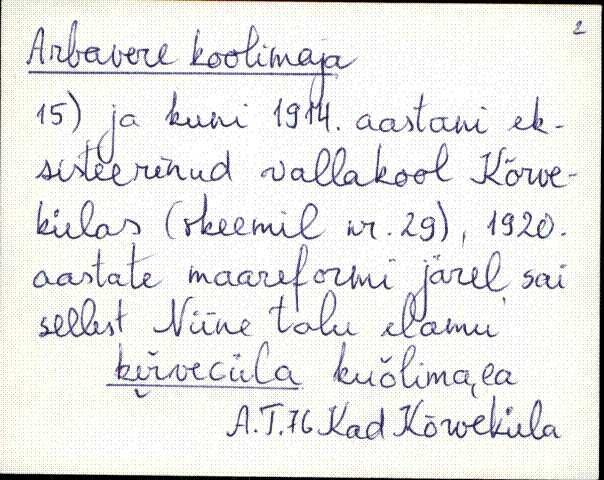 2
Arbavere koolimaja
15) ja kuni 1914. aastani ek-
sisteerinud vallakool Kõrve-
külas (skeemil nr. 29), 1920.
aastate maareformi järel sai
sellest Niine talu elamu
kuõlima,ea
A.T.76 Kad Kõrveküla